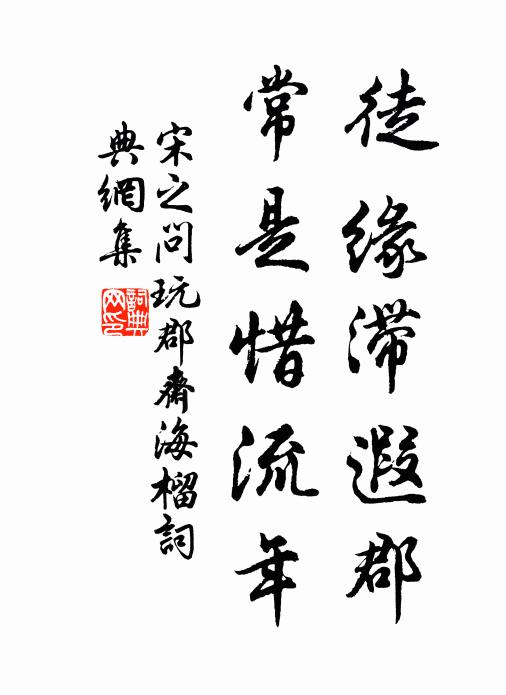 徒緣滯遐郡
常是惜流年
宋之問玩郡齋海榴詞
典網集
詞典網印